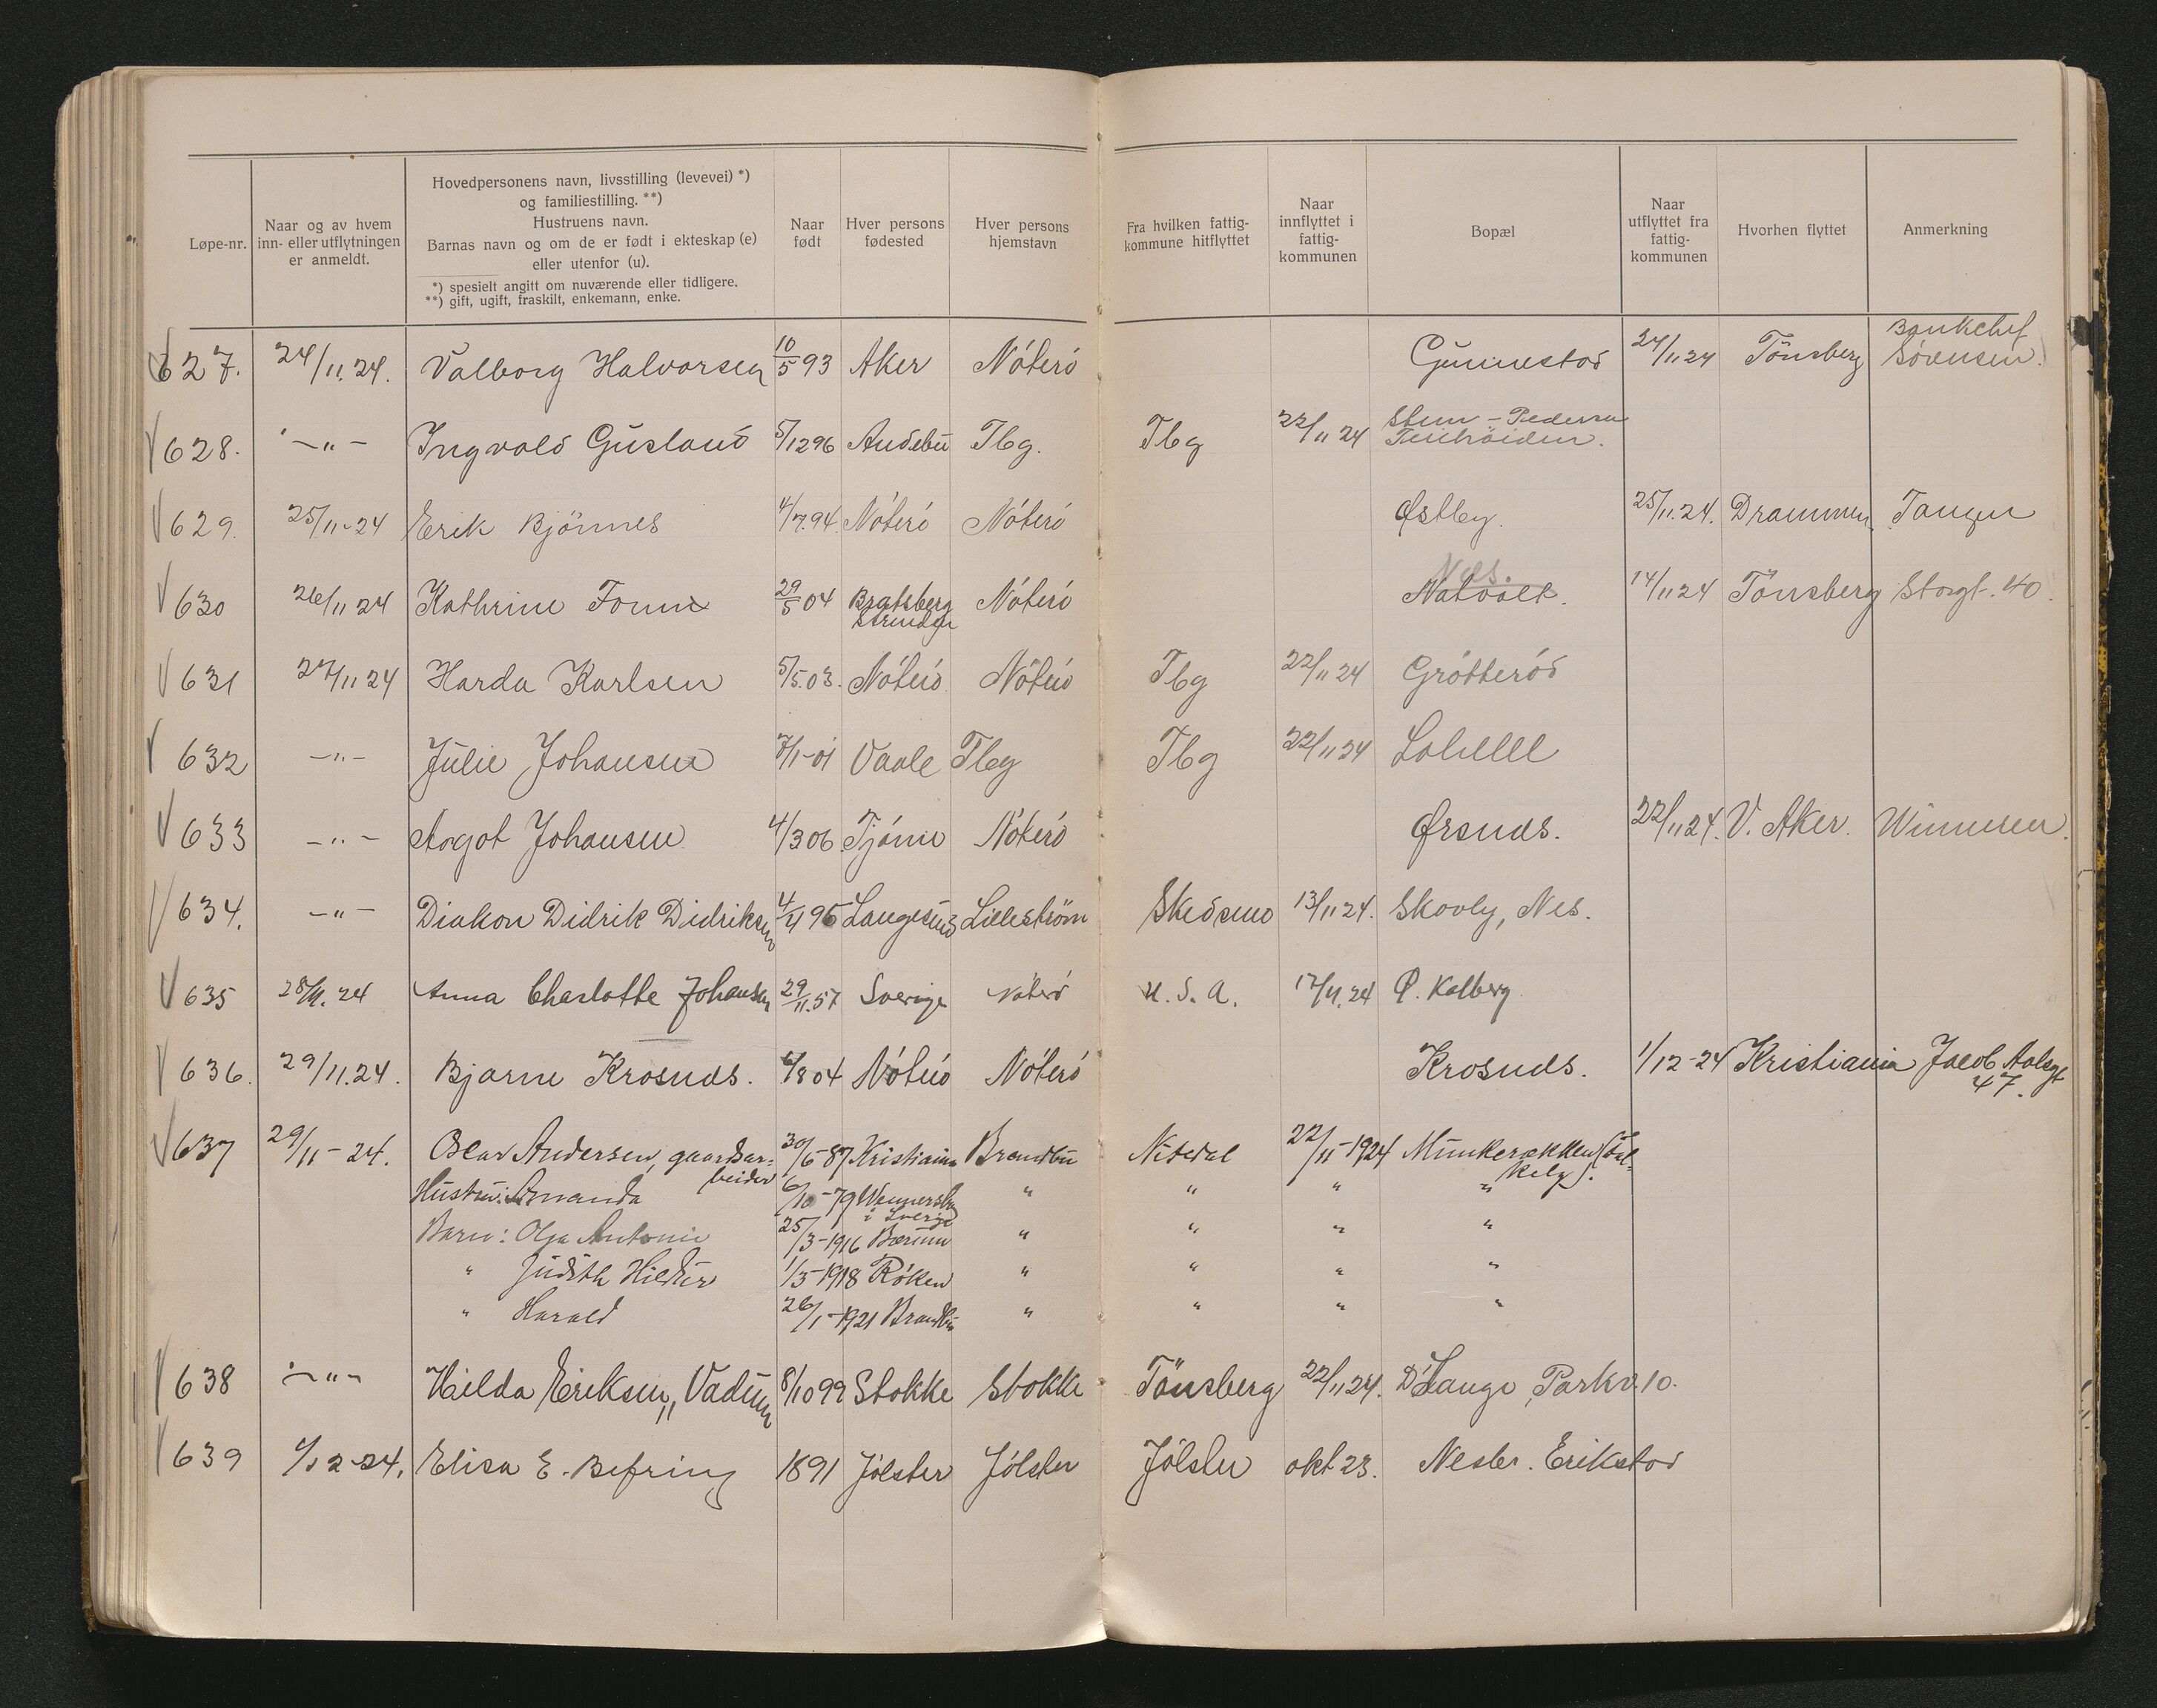 Løpe-nr.
Naar og av hvem
inn- eller utflytningen
er anmeldt.
Hovedpersonens navn, livsstilling (levevei) *)
og familiestilling. **)
Hustruens navn.
Barnas navn og om de er født i ekteskap (e)
eller utenfor (u).
*) spesielt angitt om nuværende eller tidligere.
**) gift, ugift, fraskilt, enkemann, enke.
Naar
født
Hver persons
fødested
Hver persons
hjemstavn
Fra hvilken fattig-
kommune hitflyttet
Naar
innflyttet i
fattig-
kommunen
Bopæl
Naar
utflyttet fra
fattig-
kommunen
Hvorhen flyttet
Anmerkning
627. 24/11.24. Valborg Halvorsen 10/5 93 Aker Nóteró Gunnestad 24/11 24 Tönsberg Bankchef
Sörensen.
628. -"- Ingvald Gusland 5/12 96 Andebu Tbg. Tbg 22/11 24 Pedersen
629. 25/11-24 Erik Bjönnes 4/7.94. Nóteró Nóteró Østby. 25/11.24. Drammen Tangen
630 26/11 24 Kathrine Fonn 29/5 04 Bratsberg
Strinda Nóteró Nes.
14/11 24 Tönsberg Storgt. 40.
631 27/11 24 Harda Karlsen 5/5.03. Nóteró Nóteró Tbg 22/11 24 Grótteród
632 -"- Julie Johansen 7/1-01 Vaale Tbg Tbg 22/11 24
633 -"- Aagot Johansen 4/3 06 Tjóme Nóteró Ørsnes. 22/11 24. V. Aker.
634. -"- Diakon Didrik Didriksen Langesund Lilleström Skedsmo 13/11 24. Skovly, Nes.
635 28/11.24 Anna Charlotte Johansen 29/11.57 Sverige Nóteró U.S.A. 17/11.24 Kolberg
636. 29/11.24. Bjarne Krosnes. 6/8 04 Nóteró Nóteró Krosnes. 1/12-24 Kristiania Jacob Aalsgt
47.
637 29/11-24. Oscar Andersen, gaardsar-
beider 30/6-87 Kristiania Brandbu Nitedal 22/11-1924
Hustru: Amanda 6/10-79 Wennersb.
i Sverige " " " "
Barn: Olga Antonie 25/3-1916 Bærum " " " "
" Judith Hildur 1/3-1918 Róken " " " "
" Harald 26/1-1921 Brandbu " " " "
638 -"- Hilda Eriksen, 8/10 99 Stokke Stokke Tönsberg 22/11 24. Lange, Parkv. 10.
639 1/12-24. Elisa E. Befring 1891 Jölster Jölster Jölster okt 23. Nesbr. Erikstad